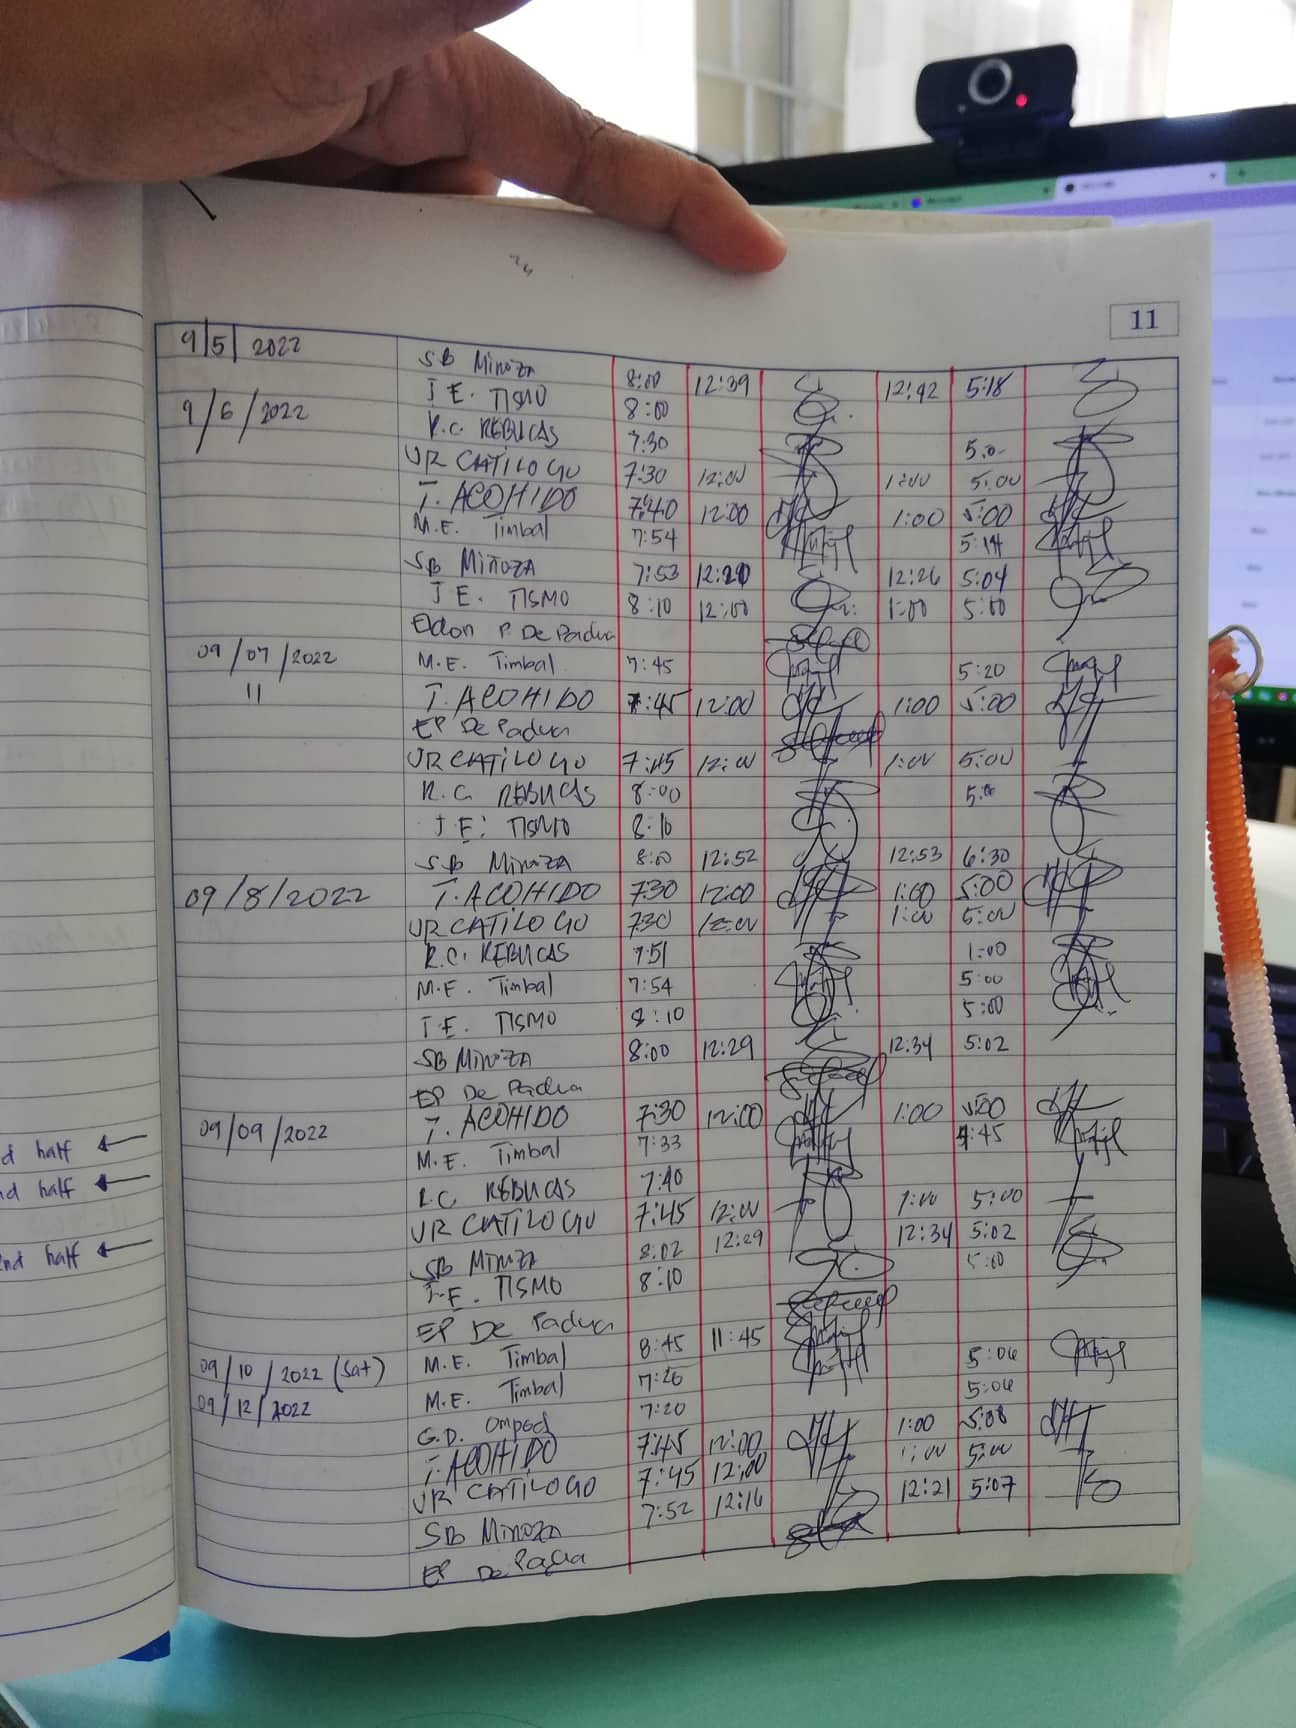 11
9/5/2022 SB Minoza 8:00 12:39 12:42 5:18
J E. TISMO 8:00
9/6/2022 R.C. REBUCAS 7:30 5:0
UR CATILOGO 7:30 12:00 1:00 5:00
T. ACOHIDO 7:40 12:00 1:00 5:00
M.E. Timbal 7:54 5:14
SB Miñoza 7:53 12:20 12:26 5:04
J E. TISMO 8:10 12:00 1:00 5:00
Edon P. De Padua
09/07/2022 M.E. Timbal 7:45 5:20
11 T. ACOHIDO 7:45 12:00 1:00 5:00
EP De Padua
UR CATILOGO 7:45 12:00 1:00 5:00
R.C. REBUCAS 8:00
J E. TISMO 8:10
SB Minoza 8:00 12:52 12:53 6:30
09/8/2022 T. ACOHIDO 730 12:00 1:00 5:00
UR CATILOGO 730 12:00 1:00 5:00
R.C. REBUCAS 751 1:00
M.E. Timbal 7:54 5:00
J.E. TISMO 8:10 5:00
SB Minoza 8:00 12:29 12:34 5:02
EP De Padua
09/09/2022 T. ACOHIDO 7:30 12:00 1:00 5:00
M.E. Timbal 7:33 4:45
R.C. REBUCAS 7:40
UR CATILOGO 7:45 12:00 1:00 5:00
SB Minoza 8:02 12:29 12:34 5:02
J.E. TISMO 8:10 5:00
EP De Padua
09/10/2022 (Sat) M.E. Timbal 8:45 11:45
09/12/2022 M.E. Timbal 7:20 5:06
G.D. Omped 7:20 5:06
T. ACOHIDO 7:45 12:00 1:00 5:00
UR CATILOGO 7:45 12:00 1:00 5:00
SB Minoza 7:52 12:16 12:21 5:07
EP De Padua
d half
nd half
2nd half